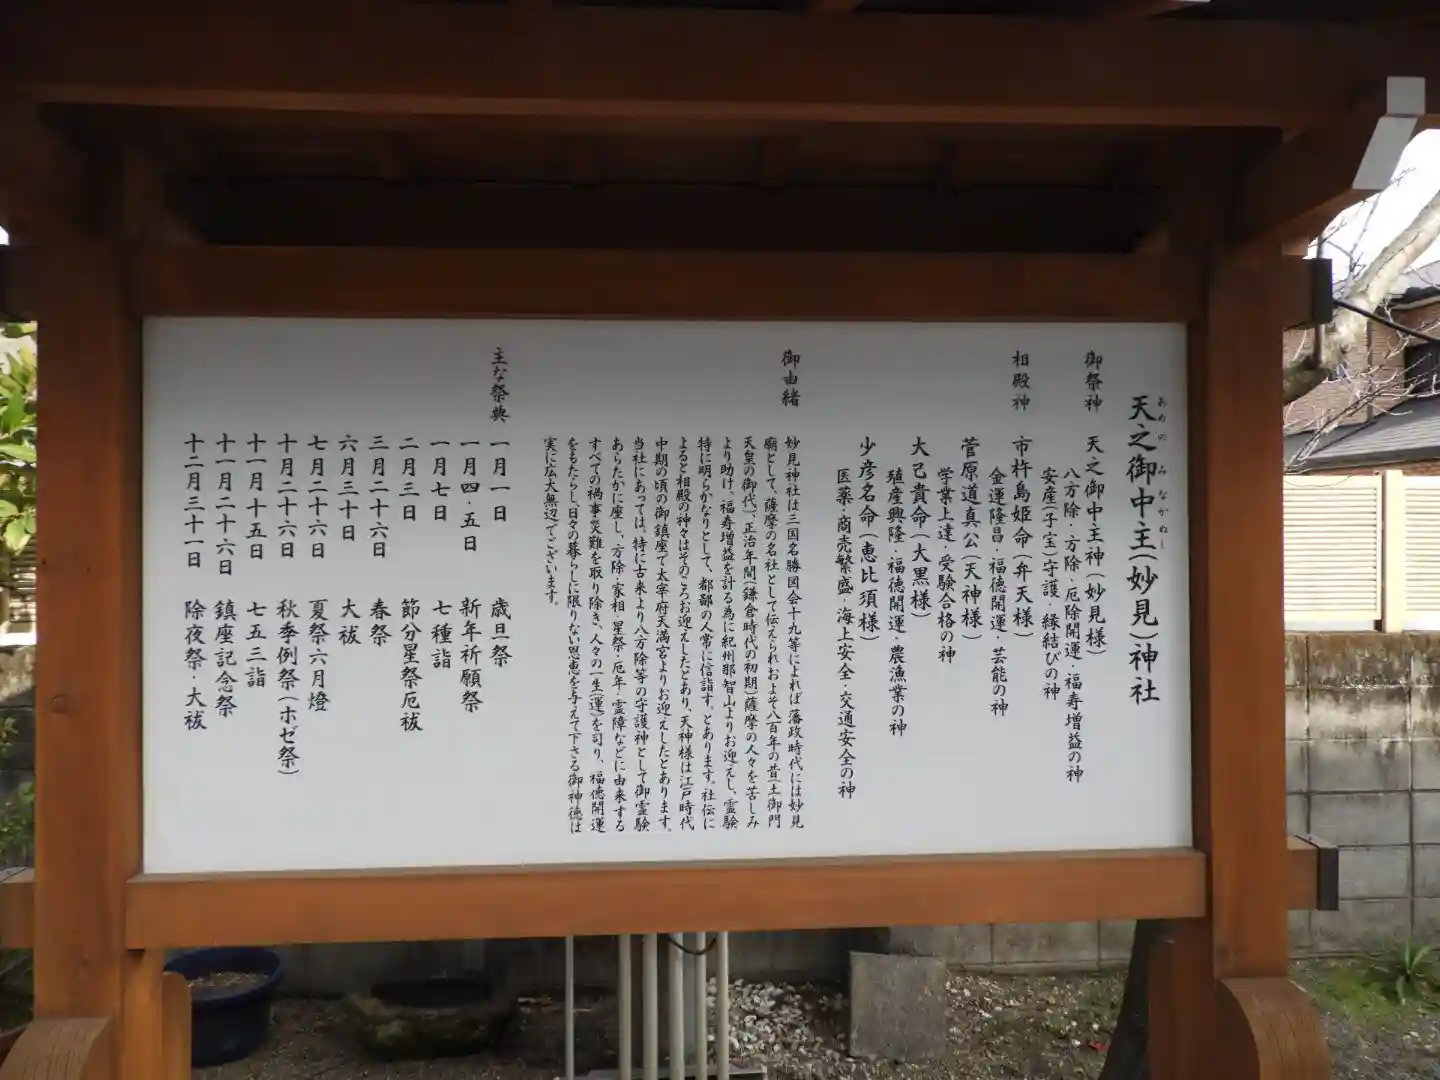 天之御中主(妙見)神社
あめの みなかぬし
御祭神 天之御中主神(妙見様)
八方除・方除・厄除開運・福寿増益の神
安産(子宝)守護・縁結びの神
相殿神 市杵島姫命(弁天様)
金運隆昌・福徳開運・芸能の神
菅原道真公(天神様)
学業上達・受験合格の神
大己貴命(大黒様)
殖産興隆・福徳開運・農漁業の神
少彦名命(恵比須様)
医薬・商売繁盛・海上安全・交通安全の神
御由緒 妙見神社は三国名勝図会十九等によれば藩政時代には妙見
廟として、薩摩の名社として伝えられおよそ八百年の昔(土御門
天皇の御代)、正治年間(鎌倉時代の初期)薩摩の人々を苦しみ
より助け、福寿増益を計る為に紀州那智山よりお迎えし、霊験
特に明らかなりとして、都鄙の人常に信詣す。とあります。社伝に
よると相殿の神々はそのころお迎えしたとあり、天神様は江戸時代
中期の頃の御鎮座で太宰府天満宮よりお迎えしたとあります。
当社にあっては、特に古来より八方除等の守護神として御霊験
あらたかに座し、方除・家相・星祭・厄年・霊障などに由来する
すべての禍事・災難を取り除き、人々の一生(運)を司り、福徳開運
をもたらし、日々の暮らしに限りない恩恵を与えて下さる御神徳は
実に広大無辺でございます。
主な祭典 一月一日 歳旦祭
一月四・五日 新年祈願祭
一月七日 七種詣
二月三日 節分星祭厄祓
三月二十六日 春祭
六月三十日 大祓
七月二十六日 夏祭六月燈
十月二十六日 秋季例祭(ホゼ祭)
十一月十五日 七五三詣
十一月二十六日 鎮座記念祭
十二月三十一日 除夜祭・大祓